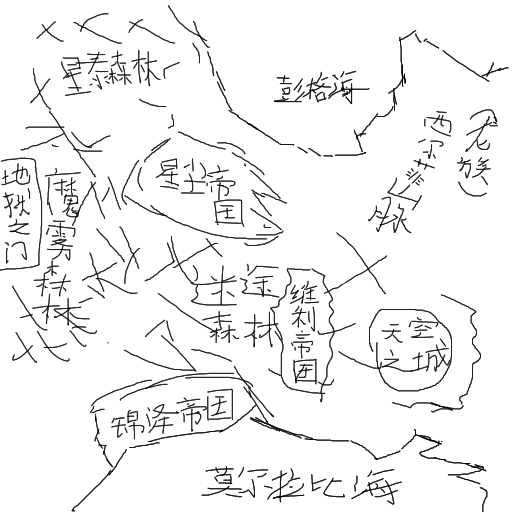 星泰森林
彭格海
西尔菲山脉
(龙族)
星尘帝国
地铁之门
魔雾森林
迷途
森林
维利帝国
天空
之城
锦泽帝国
莫尔拉比海